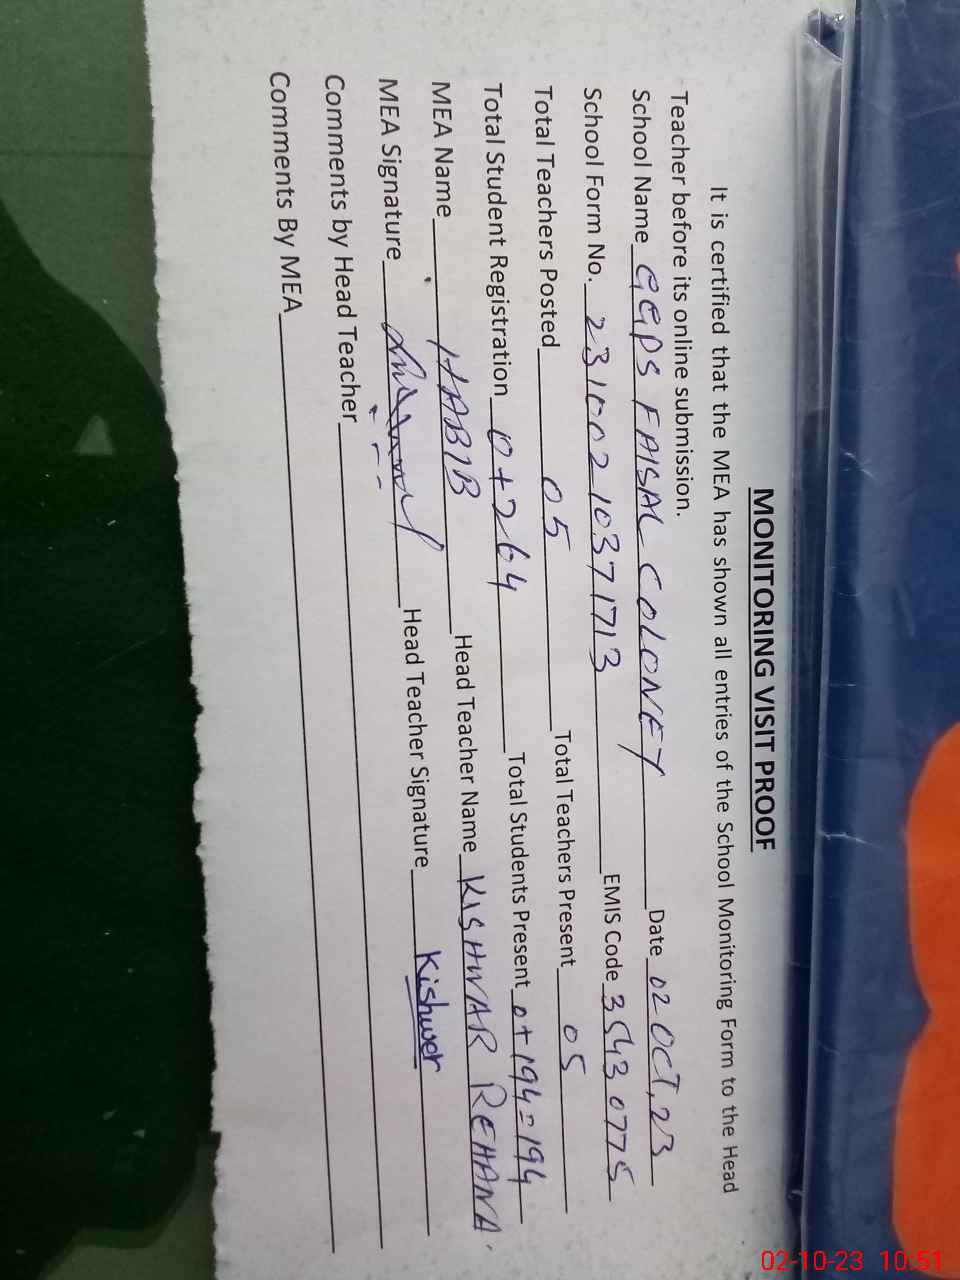 MONITORING VISIT PROOF
It is certified that the MEA has shown all entries of the School Monitoring Form to the Head
Teacher before its online submission.
School Name GGPS FAISAL COLONEY Date 02 OCT, 23
School Form No. 23100210371713 EMIS Code 35430775
Total Teachers Posted 05 Total Teachers Present 05
Total Student Registration 0+264 Total Students Present 0+194=194
MEA Name HABIB Head Teacher Name KISHWAR REHANA.
MEA Signature Head Teacher Signature Kishwer
Comments by Head Teacher
Comments By MEA
02-10-23 10:51